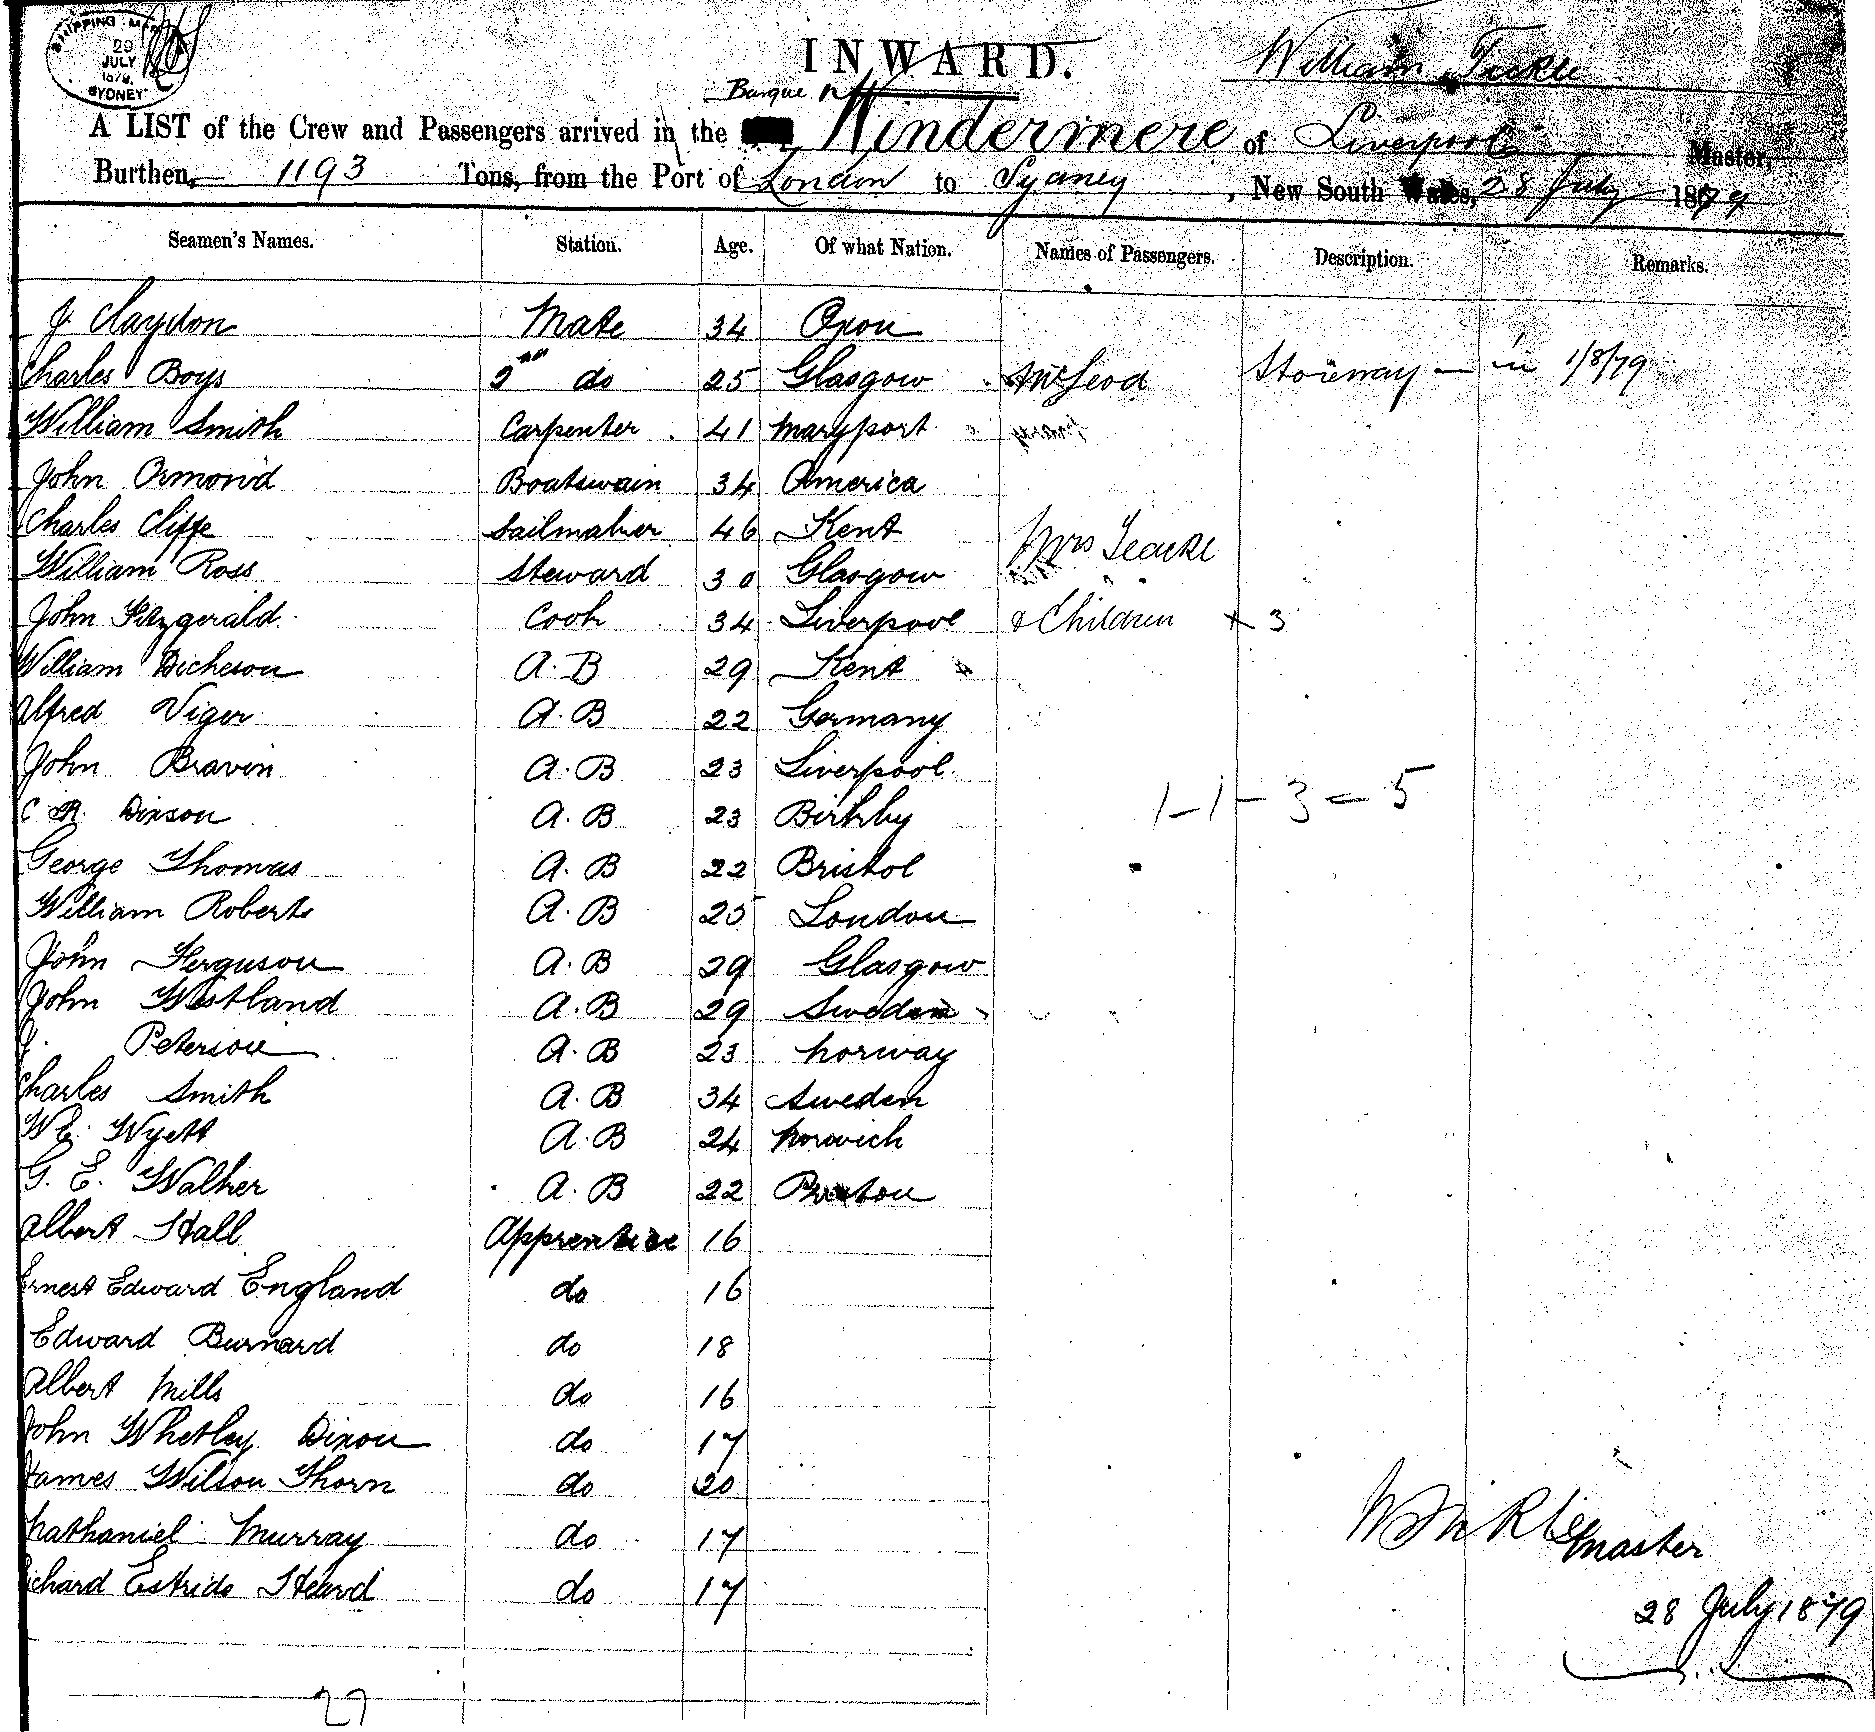 SHIPPING M
29
JULY
1879
SYDNEY
INWARD.
William
Barque
A LIST of the Crew and Passengers arrived in the Windermere of Liverpool Master,
Burthen, 1193 Tons, from the Port of London to Sydney, New South Wales, 28 July 1879
Seamen's Names. Station. Age. Of what Nation. Names of Passengers. Description. Remarks.
J Claydon Mate 34 Oxon
Charles Boys 2nd do 25 Glasgow McLeod Stoneway in 1/8/79
William Smith Carpenter 41 Maryport
John Ormond Boatswain 34 America
Charles Cliffe Sailmaker 46 Kent
William Ross Steward 30 Glasgow Mrs
John Fitzgerald Cook 34 Liverpool & Children + 3
William Dickeson A.B 29 Kent
Alfred Viger A.B 22 Germany
John Bravin A.B 23 Liverpool
C R Dixson A.B 23 Birkby 1-1-3=5
George Thomas A.B 22 Bristol
William Roberts A.B 25 London
John Ferguson A.B 29 Glasgow
John Westland A.B 29 Sweden
Peterson A.B 23 Norway
Charles Smith A.B 34 Sweden
Wyett A.B 24 Norwich
G. E. Walker A.B 22
Albert Hall Apprentice 16
Ernest Edward England do 16
Edward Burnard do 18
Albert Mills do 16
John Whetley Dixon do 17
James Wilson Thorn do 20
Nathaniel Murray do 17
Richard Estrido Heard do 17
Master
28 July 1879
27